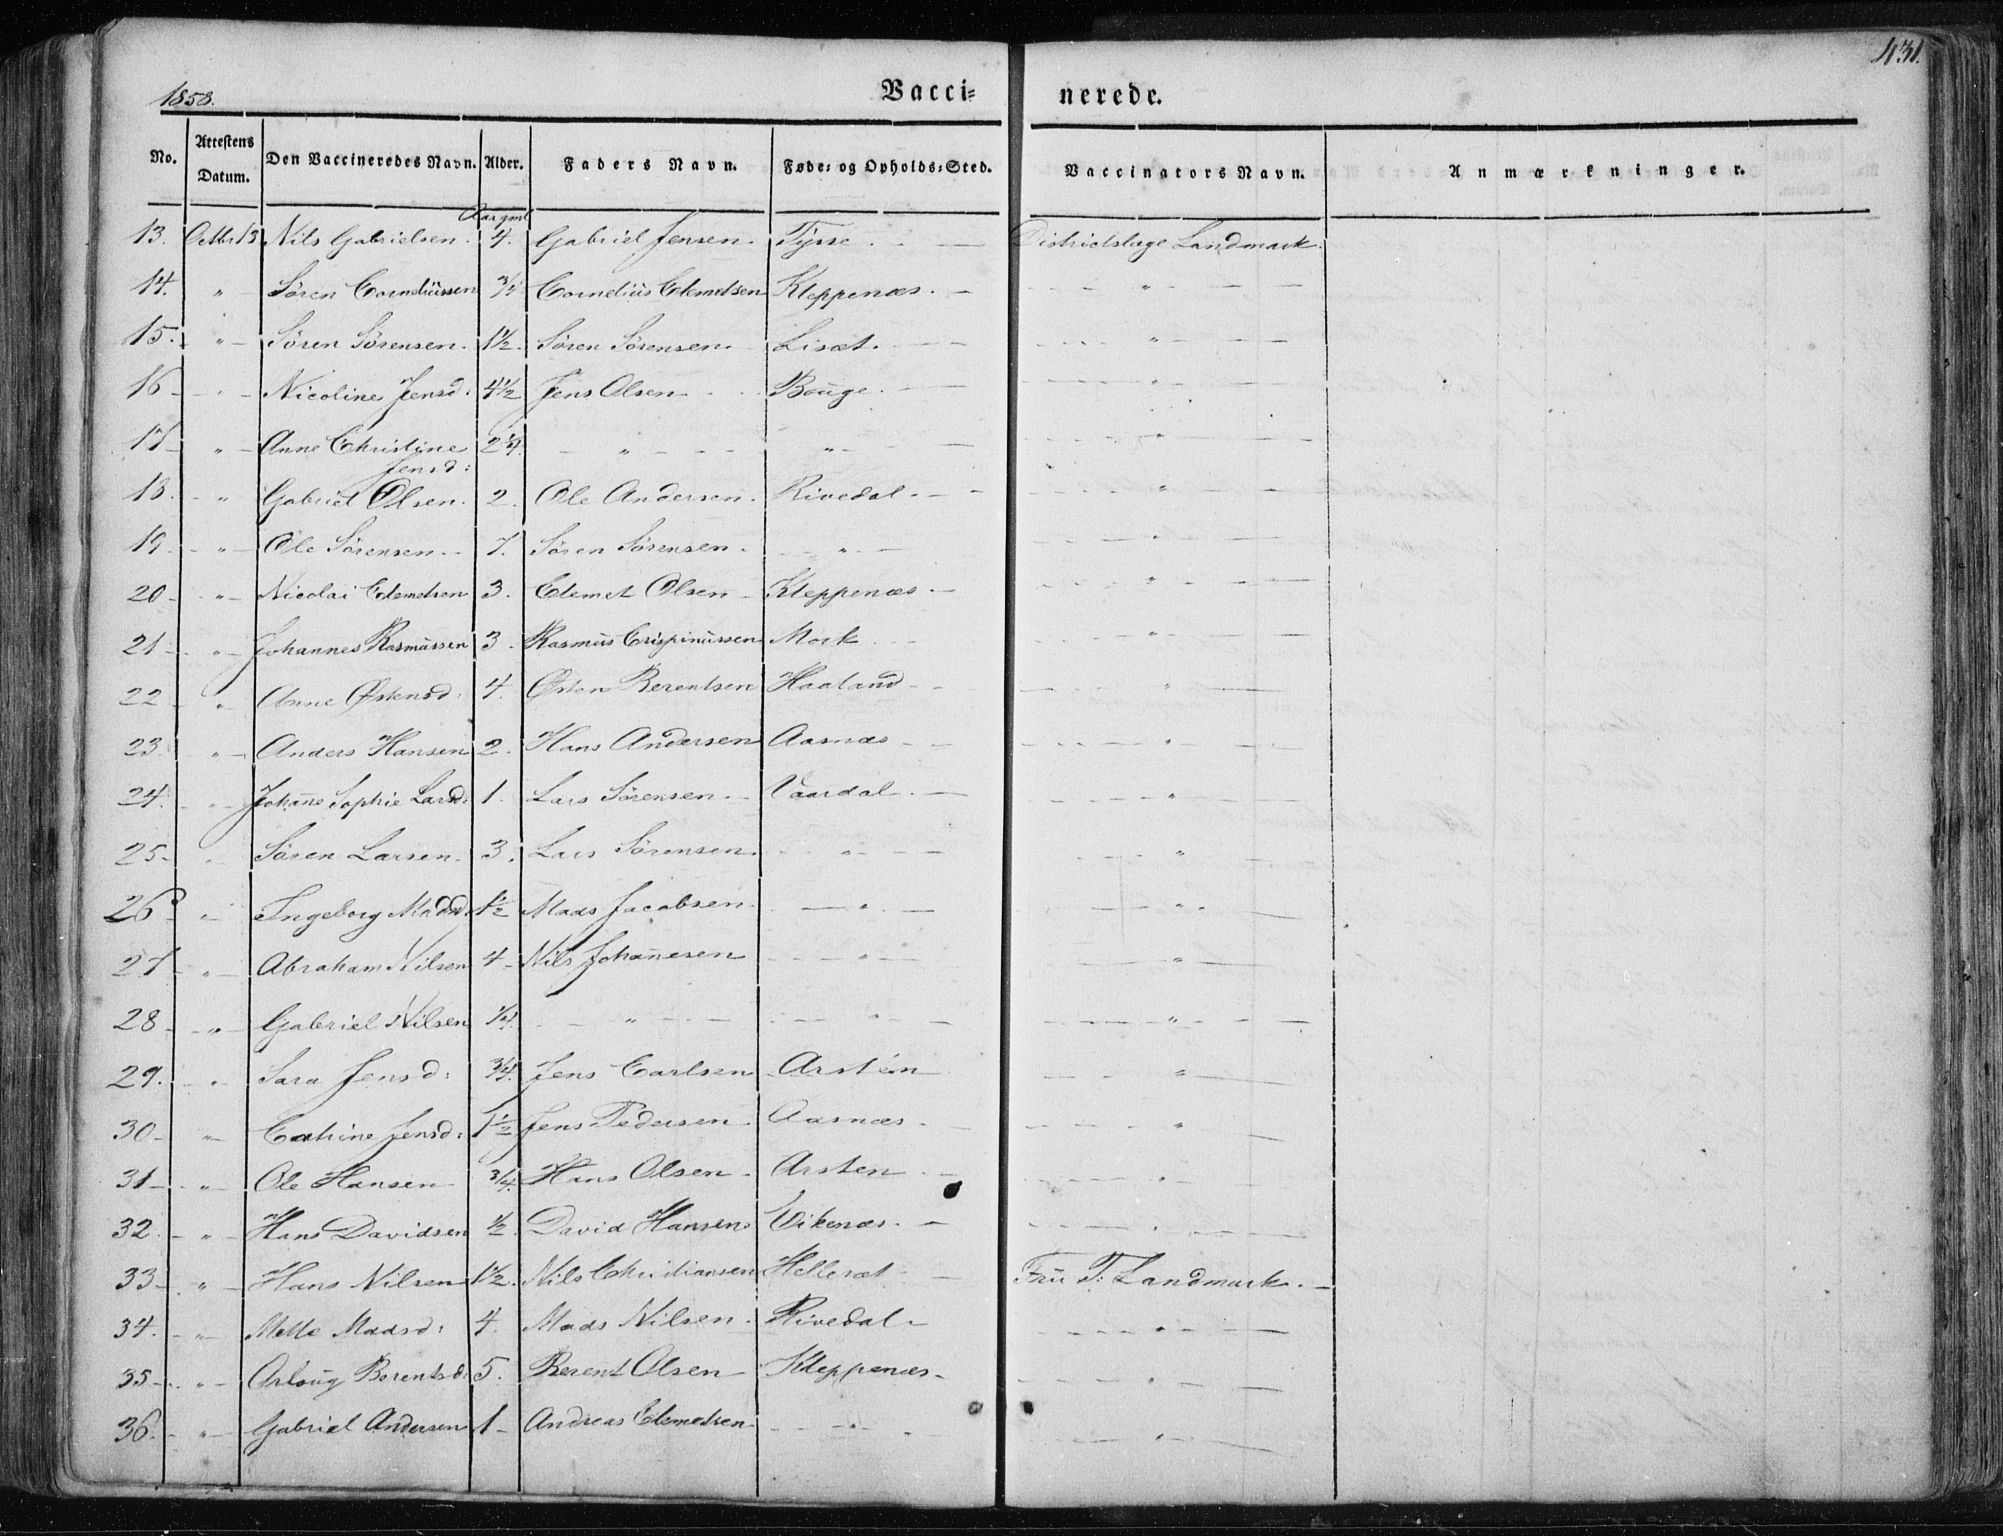 431.
1858. Vacci= nerede.
No. Attestens Datum. Den Vaccineredes Navn. Alder. Faders Navn. Føde= og Opholds=Sted. Vaccinators Navn. Anmærkninger.
Aar gml
13. Octbr 13 Nils Gabrielsen. 4. Gabriel Jensen. Tysse. — Districtslæge Landmark.
14. " Søren Corneliussen 3/4 Cornelius Clemetsen Kleppenæs. — "
15. " Søren Sørensen. 1½. Søren Sørensen. Lisæt. — "
16 — " Nicoline Jensd: 4½ Jens Olsen Bouge. — "
17 — " Anne Christine 2¼. — " — " — "
Jensd:
18. — " Gabriel Olsen. 2. Ole Andersen. Rivedal. — "
19. — " Ole Sørensen. 7. Søren Sørensen. — " — "
20 — " Nicolai Clemetsen 3. Clemet Olsen Kleppenæs. — "
21 — " Johannes Rasmussen 3. Rasmus Crispinussen Mork — "
22 — " Anne Østensd: 4. Østen Berentsen Haaland — "
23. " Anders Hansen 2. Hans Andersen Aasnæs — "
24. " Johan̄e Sophie Larsd: 1. Lars Sørensen. Vaardal. — "
25 — " Søren Larsen. 3. Lars Sørensen. — " — "
26 — " Ingeborg Madsd 1½ Mads Jacobsen. — " — "
27 — " Abraham Nilsen 4 — Nils Johan̄esen — " — "
28 — " Gabriel Nilsen ¼. — " — " — "
29. " Sara Jensd: 3/4. Jens Carlsen Arsten — "
30 — " Cathrine Jensd: 1½ Jens Pedersen. Aasnæs. — "
31 — " Ole Hansen 3/4. Hans Olsen. Arsten — "
32. — " Hans Davidsen ½. David Hansen Eikenæs. — "
33 — " Hans Nilsen 1½. Nils Christiansen Hellesæt — Fru T: Landmark. —
34. — " Mette Madsd: 4. Mads Nilsen. Rivedal — "
35 — " Berentsd: 5. Berent Olsen Kleppenæs — "
36. — " Gabriel Andersen 1 — Andreas Clemetsen — " — "